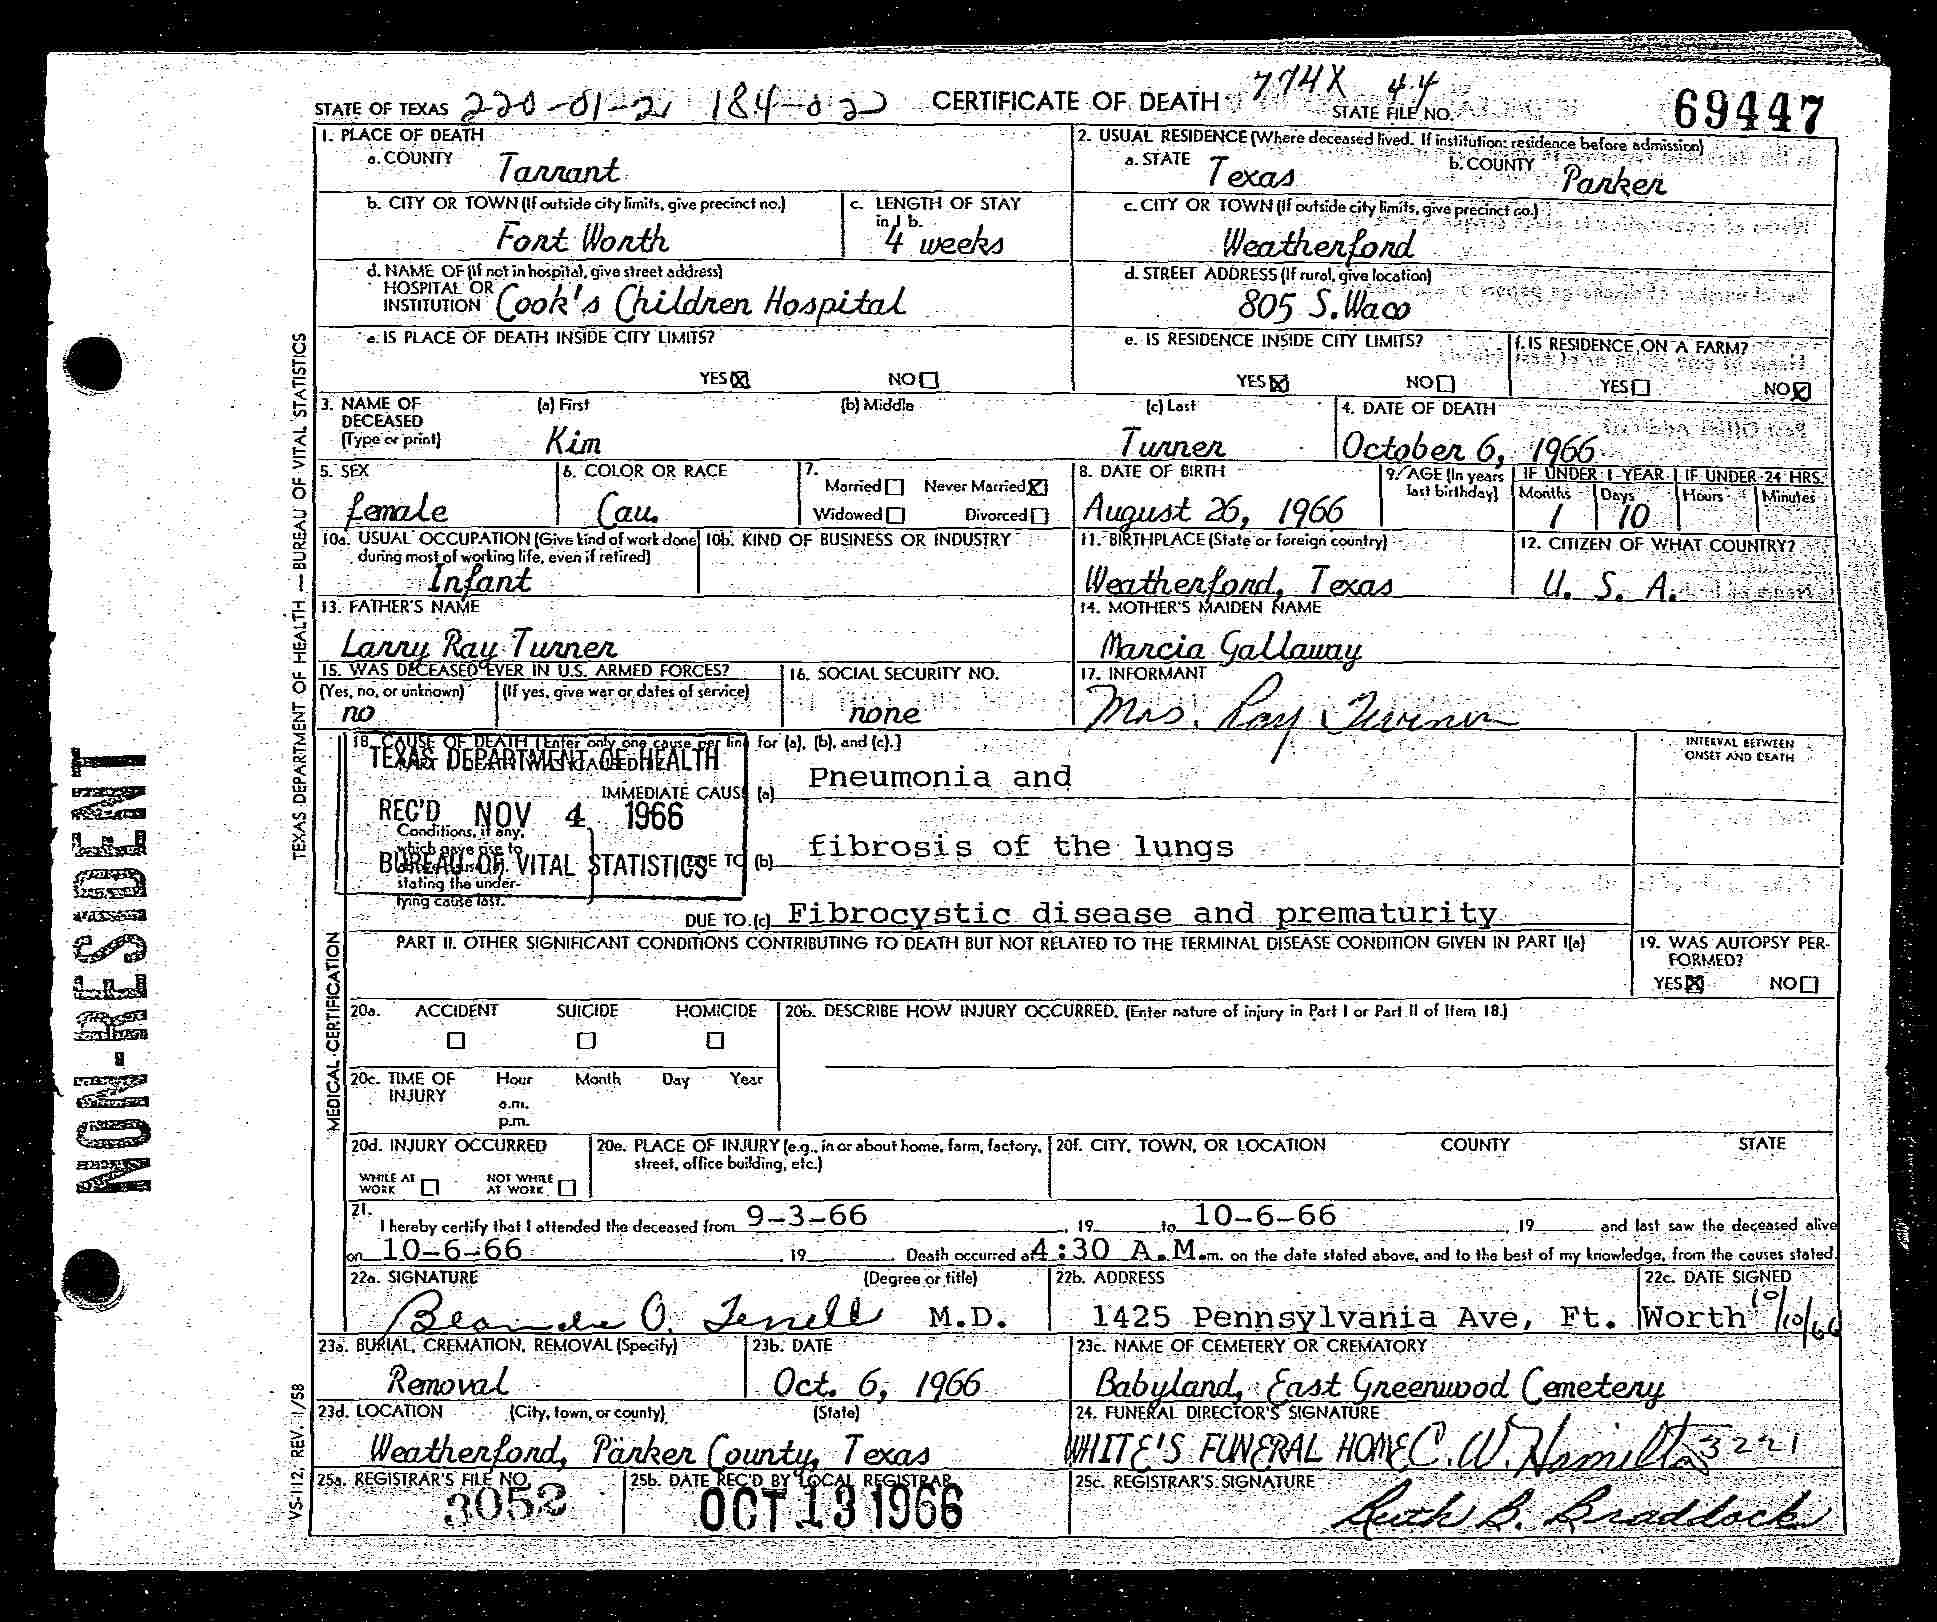 STATE OF TEXAS 220-01-2 184-032 CERTIFICATE OF DEATH 774X 44 STATE FILE NO. 69447
1. PLACE OF DEATH
a. COUNTY Tarrant
2. USUAL RESIDENCE (Where deceased lived. If institution: residence before admission)
a. STATE Texas b. COUNTY Parker
b. CITY OR TOWN (If outside city limits, give precinct no.) Fort Worth
c. LENGTH OF STAY in 1 b. 4 weeks
c. CITY OR TOWN (If outside city limits, give precinct no.) Weatherford
d. NAME OF (If not in hospital, give street address)
HOSPITAL OR
INSTITUTION Cook's Children Hospital
d. STREET ADDRESS (If rural, give location)
805 S. Waco
e. IS PLACE OF DEATH INSIDE CITY LIMITS?
YES ☒ NO ☐
e. IS RESIDENCE INSIDE CITY LIMITS?
YES ☒ NO ☐
f. IS RESIDENCE ON A FARM?
YES ☐ NO ☒
3. NAME OF DECEASED (Type or print)
(a) First (b) Middle (c) Last
Kim Turner
4. DATE OF DEATH
October 6, 1966
5. SEX
female
6. COLOR OR RACE
Cau.
7. Married ☐ Never Married ☒
Widowed ☐ Divorced ☐
8. DATE OF BIRTH
August 26, 1966
9. AGE (In years last birthday)
IF UNDER 1 YEAR IF UNDER 24 HRS.
Months Days Hours Minutes
1 10
10a. USUAL OCCUPATION (Give kind of work done during most of working life, even if retired)
Infant
10b. KIND OF BUSINESS OR INDUSTRY
11. BIRTHPLACE (State or foreign country)
Weatherford, Texas
12. CITIZEN OF WHAT COUNTRY?
U. S. A.
13. FATHER'S NAME
Larry Ray Turner
14. MOTHER'S MAIDEN NAME
Marcia Gallaway
15. WAS DECEASED EVER IN U.S. ARMED FORCES?
(Yes, no, or unknown) (If yes, give war or dates of service)
no
16. SOCIAL SECURITY NO.
none
17. INFORMANT
Mrs. Ray Turner
18. CAUSE OF DEATH (Enter only one cause per line for (a), (b), and (c).)
INTERVAL BETWEEN
ONSET AND DEATH
TEXAS DEPARTMENT OF HEALTH
REC'D NOV 4 1966
BUREAU OF VITAL STATISTICS
IMMEDIATE CAUSE (a) Pneumonia and
Conditions, if any,
which gave rise to
stating the under-
lying cause last.
DUE TO (b) fibrosis of the lungs
DUE TO (c) Fibrocystic disease and prematurity
PART II. OTHER SIGNIFICANT CONDITIONS CONTRIBUTING TO DEATH BUT NOT RELATED TO THE TERMINAL DISEASE CONDITION GIVEN IN PART I(a)
19. WAS AUTOPSY PER-
FORMED?
YES ☒ NO ☐
20a. ACCIDENT SUICIDE HOMICIDE
☐ ☐ ☐
20b. DESCRIBE HOW INJURY OCCURRED. (Enter nature of injury in Part I or Part II of Item 18.)
20c. TIME OF INJURY Hour Month Day Year
a.m.
p.m.
20d. INJURY OCCURRED
WHILE AT WORK ☐ NOT WHILE AT WORK ☐
20e. PLACE OF INJURY (e.g., in or about home, farm, factory, street, office building, etc.)
20f. CITY, TOWN, OR LOCATION COUNTY STATE
21.
I hereby certify that I attended the deceased from 9-3-66, 19 to 10-6-66, 19 and last saw the deceased alive
on 10-6-66, 19 Death occurred at 4:30 A.M. m. on the date stated above, and to the best of my knowledge, from the causes stated.
22a. SIGNATURE (Degree or title)
Blanche O. Terrell M.D.
22b. ADDRESS
1425 Pennsylvania Ave, Ft. Worth
22c. DATE SIGNED
10/10/66
23a. BURIAL, CREMATION, REMOVAL (Specify)
Removal
23b. DATE
Oct. 6, 1966
23c. NAME OF CEMETERY OR CREMATORY
Babyland, East Greenwood Cemetery
23d. LOCATION (City, town, or county) (State)
Weatherford, Parker County, Texas
24. FUNERAL DIRECTOR'S SIGNATURE
WHITE'S FUNERAL HOME C. W. Hamilton 3221
25a. REGISTRAR'S FILE NO.
3052
25b. DATE REC'D BY LOCAL REGISTRAR
OCT 13 1966
25c. REGISTRAR'S SIGNATURE
Ruth B. Braddock
TEXAS DEPARTMENT OF HEALTH — BUREAU OF VITAL STATISTICS
MEDICAL CERTIFICATION
VS-112, REV. 1/58
NON-RESIDENT